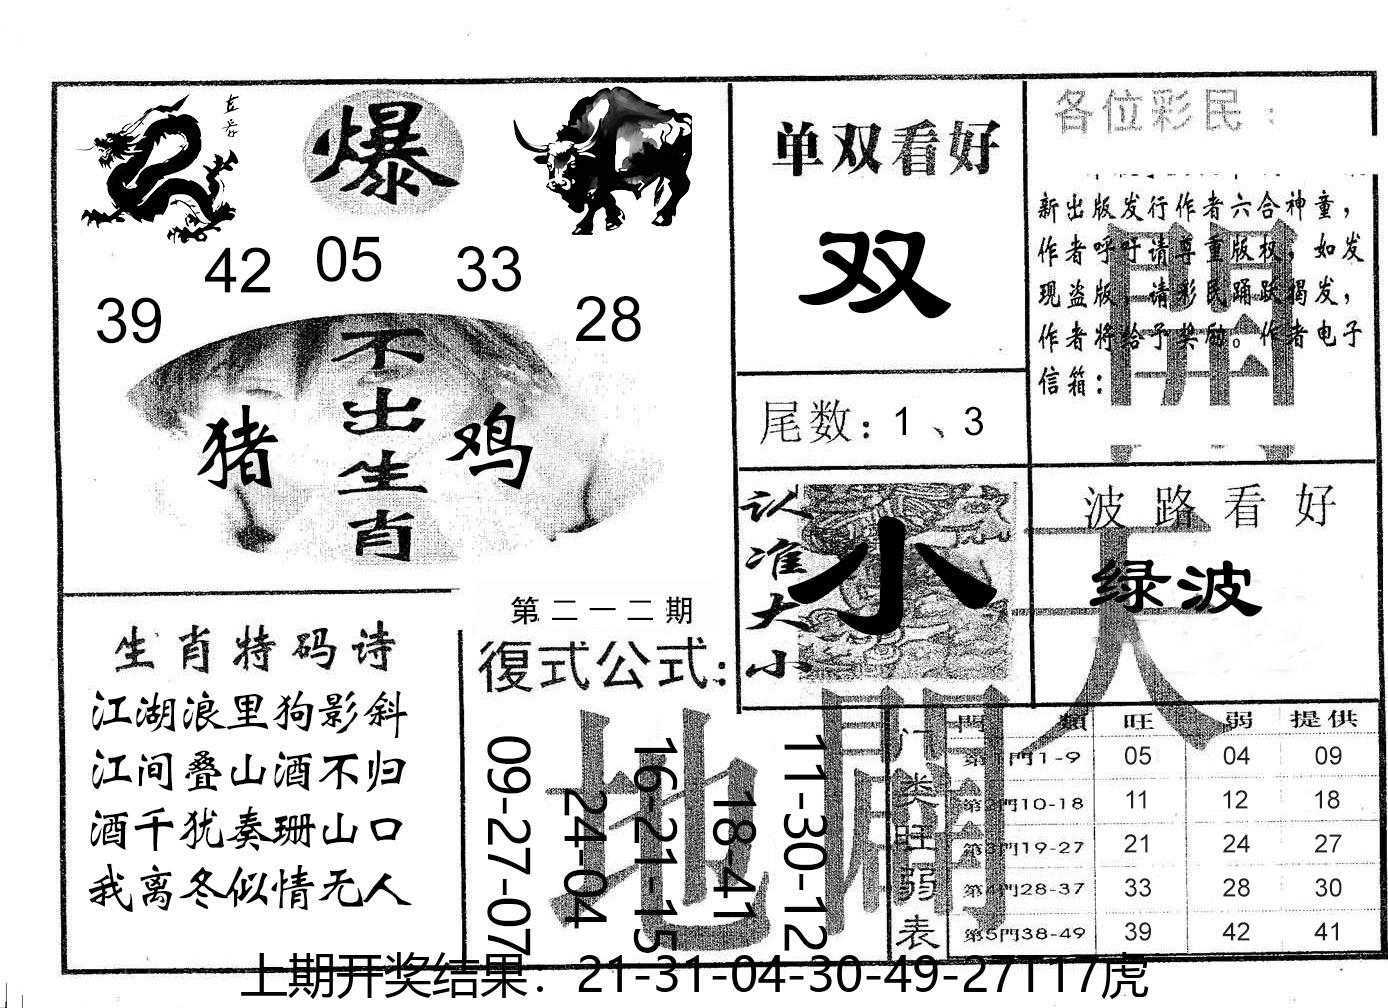 爆
42 05 33
39 28
不出生肖
猪 鸡
生肖特码诗
江湖浪里狗影斜
江间叠山酒不归
酒千犹奏珊山口
我离冬似情无人
单双看好
双
尾数：1、3
认准大小
小
各位彩民：
新出版发行作者六合神童，
作者呼吁请尊重版权，如发
现盗版，请彩民踊跃揭发，
作者将给予奖励。作者电子
信箱：
波路看好
绿波
天
地
第二一二期
復式公式：
09-27-07
24-04
16-21-15
18-41
11-30-12
门类旺弱表
門類 旺 弱 提供
第1門1-9 05 04 09
第2門10-18 11 12 18
第3門19-27 21 24 27
第4門28-37 33 28 30
第5門38-49 39 42 41
上期开奖结果：21-31-04-30-49-27T17虎